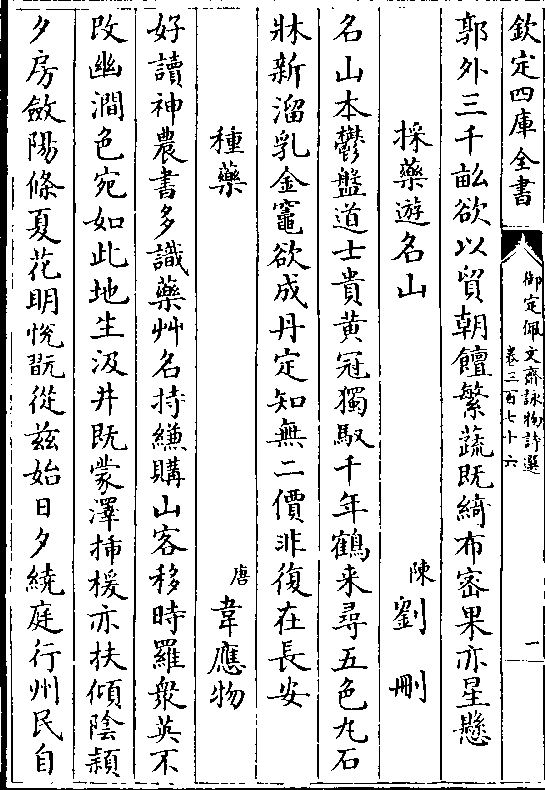 欽定四庫全書
御定佩文齋詠物詩選
卷三百七十六
一
郭外三千畝欲以貿朝饘繁蔬既綺布密果亦星懸
採藥遊名山
陳劉刪
名山本鬱盤道士貴黄冠獨馭千年鶴来尋五色丸石
牀新溜乳金竈欲成丹定知無二價非復在長安
種藥
唐韋應物
好讀神農書多識藥艸名持縑購山客移時羅衆英不
改幽澗色宛如此地生汲井既蒙澤插楥亦扶傾陰穎
夕房斂陽條夏花明悅翫從茲始日夕繞庭行州民自